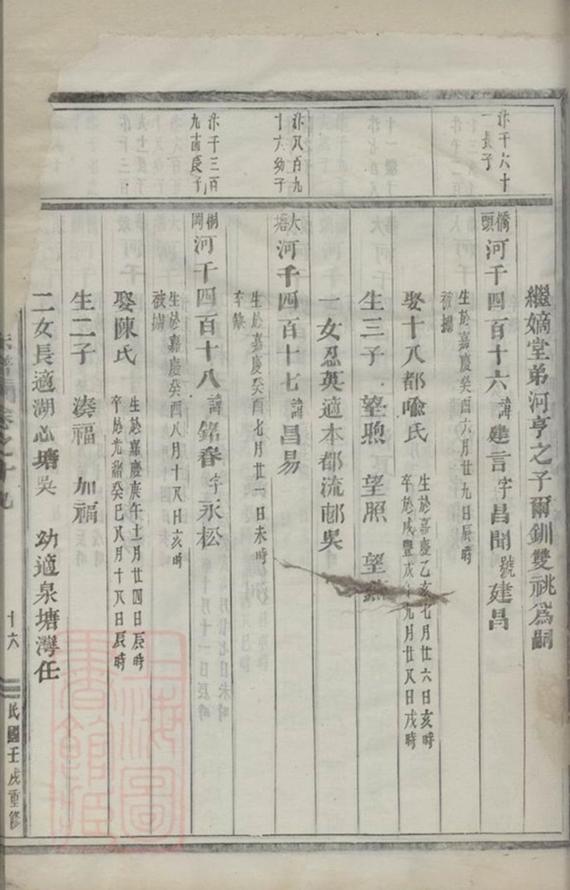 繼嫡堂弟河亨之子爾釧雙祧為嗣
汴千六十
一長子
橋頭 河千四百十六 諱建言字昌聞號建昌
生於嘉慶癸酉六月廿九日辰時
被擄
娶十八都喻氏
生於嘉慶乙亥七月廿六日亥時
卒於咸豐戊午九月廿八日戌時
生三子 望煦 望照 望
一女忍英適本都流邨吳
汴八百九
十六幼子
大塘 河千四百十七 諱昌易
生於嘉慶癸酉七月廿一日未時
卒缺
汴千三百
九十八長子
桐岡 河千四百十八 諱銘春字永松
生於嘉慶癸酉八月十八日亥時
被擄
娶陳氏
生於嘉慶庚午十二月廿四日辰時
卒於光緒癸巳八月十八日辰時
生二子 湊福 加福
二女長適湖忩塘吳 幼適泉塘灣任
卷之十九
十六
民國壬戌重修
上海圖書館藏